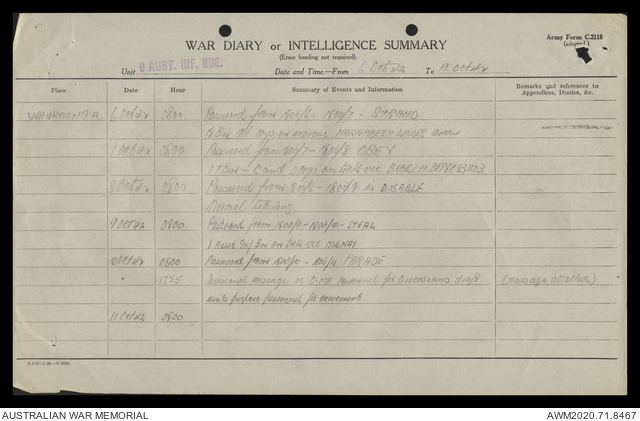 Army Form C.2118
(adapted.)
WAR DIARY or INTELLIGENCE SUMMARY
(Erase heading not required).
Unit 9 AUST. INF. BDE. Date and Time.—From 6 Oct 42 To 12 Oct 42
Place Date Hour Summary of Events and Information Remarks and references to Appendices, Diaries, &c.
WAHROONGA 6 Oct 42 0800 Password from 1800/6 - 1800/7 - STRAND
Bn Gp on exercise area
7 Oct 42 0800 Password from 1800/7 - 1800/8 OBEY
17 Bn - C and Coys
8 Oct 42 0800 Password from 1800/8 - 1800/9 is DISABLE
Normal training
9 OCT 42 0800 Password from 1800/9 - 1800/10 - STEAL
1 Aust Bn on MENAI
10 Oct 42 0800 Password from 1800/10 - 1800/11 PARADE
1755 Divisional message personnel for QUEENSLAND draft. (message attached)
units prepare personnel for movement
11 Oct 42 0800
AUSTRALIAN WAR MEMORIAL
AWM2020.71.8467